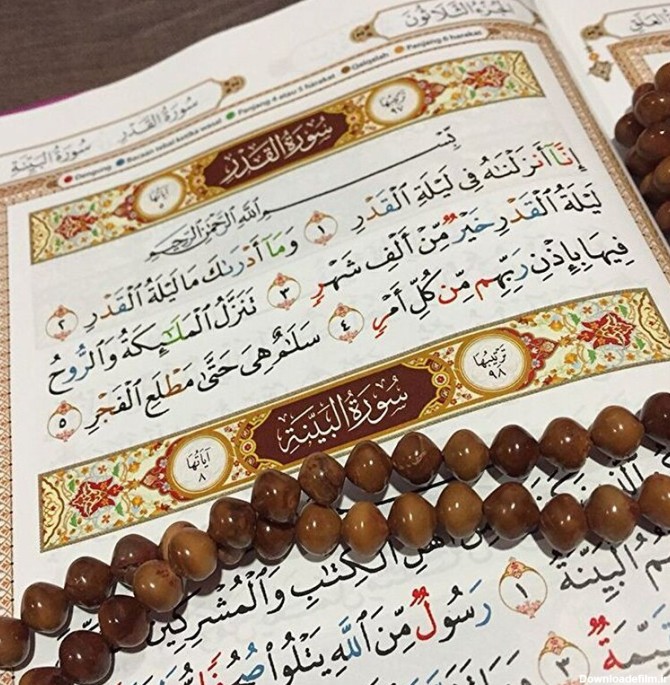 الجزء الثلاثون
سورة القدر سورة البينة
Dengung Bacaan tebal ketika waqaf Panjang 4 atau 5 harakat Qalqalah Panjang 6 harakat
ترتيبها ٩٧ سُورَةُ القَدْرِ آياتها ٥
بِسْمِ اللَّهِ الرَّحْمَٰنِ الرَّحِيمِ
إِنَّا أَنزَلْنَاهُ فِي لَيْلَةِ الْقَدْرِ ١ وَمَا أَدْرَىٰكَ مَا لَيْلَةُ الْقَدْرِ ٢
لَيْلَةُ الْقَدْرِ خَيْرٌ مِّنْ أَلْفِ شَهْرٍ ٣ تَنَزَّلُ الْمَلَٰٓئِكَةُ وَالرُّوحُ
فِيهَا بِإِذْنِ رَبِّهِم مِّن كُلِّ أَمْرٍ ٤ سَلَامٌ هِيَ حَتَّىٰ مَطْلَعِ الْفَجْرِ ٥
ترتيبها ٩٨ سُورَةُ البَيِّنَةِ آياتها ٨
أَهْلِ الْكِتَٰبِ وَالْمُشْرِكِينَ
الْبَيِّنَةُ ١ رَسُولٌ مِّنَ اللَّهِ يَتْلُوا۟
٣
Downloadefilm.ir